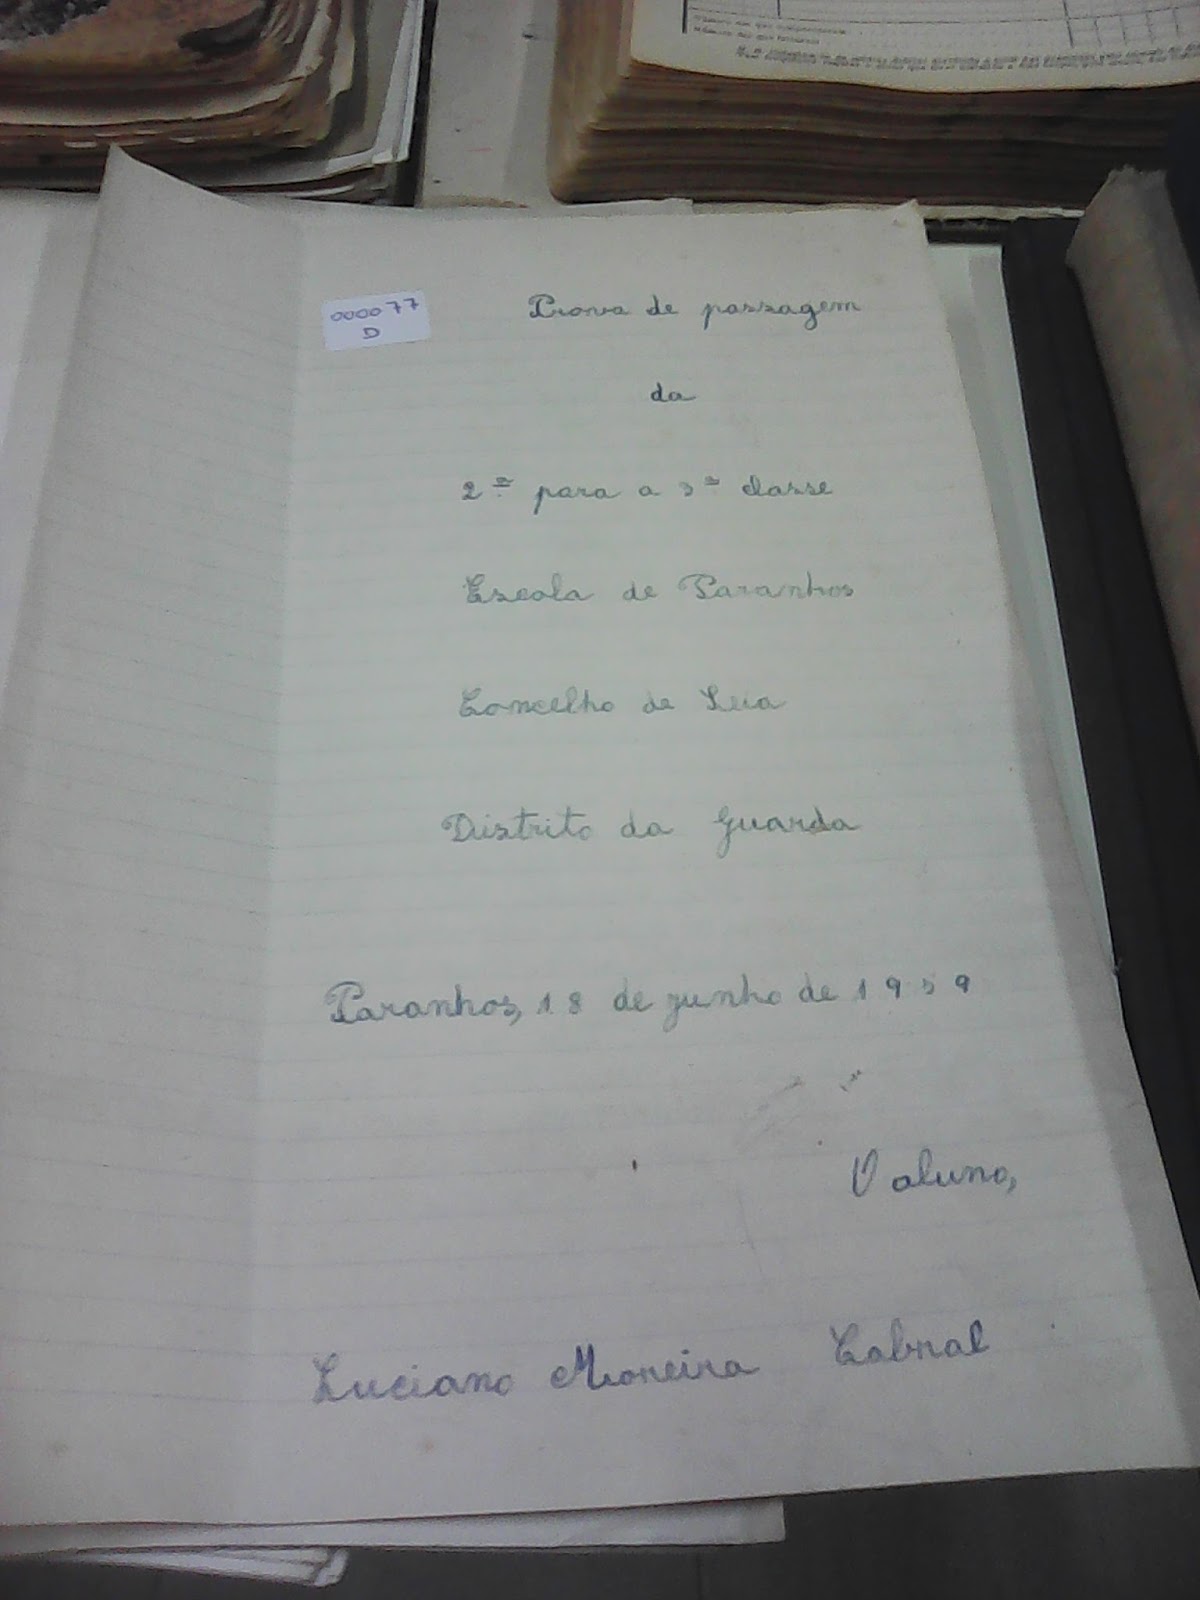 000077
D
Prova de passagem
da
2ª para a 3ª classe
Escola de Paranhos
Concelho de Seia
Distrito da Guarda
Paranhos, 18 de junho de 1959
O aluno,
Luciano Moreira Cabral